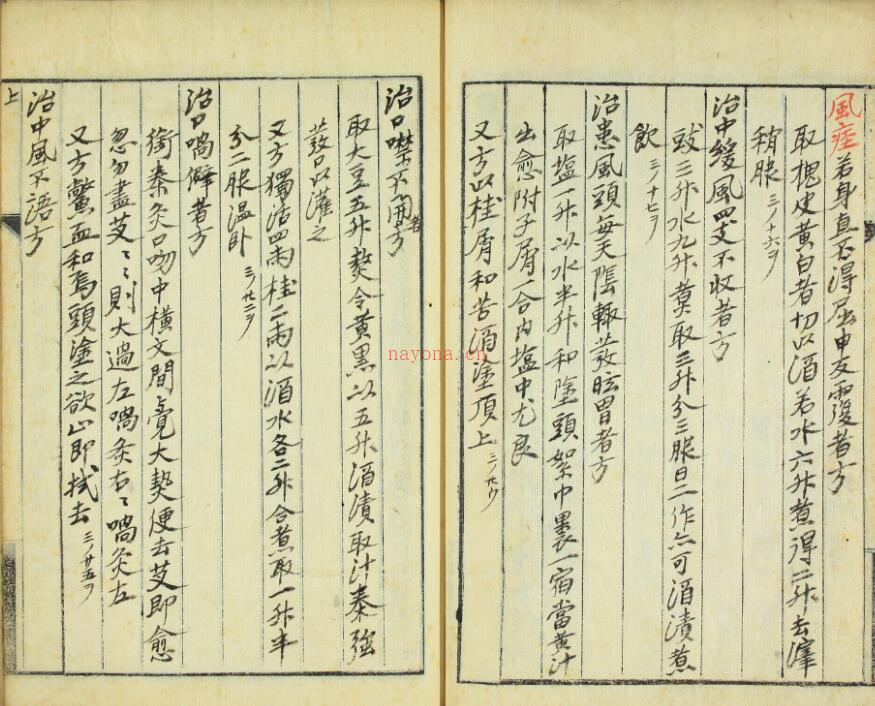 風痙若身直不得屈申反覆者方
取槐皮黄白者切以酒若水六升煮得二升去滓
稍服 三ノ十六ヲ
治中緩風四支不收者方
豉三升水九升煮取三升分三服日二作亦可酒漬煮
飲 三ノ十七ヲ
治患風頭每天陰輙發眩冒者方
取塩一升以水半升和塗頭絮巾裹一宿當黄汁
出愈附子屑一合内塩中尤良
又方以桂屑和苦酒塗頂上 三ノ廿ウ
治口噤不開者方
取大豆五升熬令黄黒以五升酒漬取汁桼強
發口以灌之
又方獨活四兩桂二兩以酒水各二升合煮取一升半
分二服温卧 三ノ廿二ヲ
治口喎僻者方
銜奏灸口吻中横文間覺大熱便去艾即愈
忽勿盡艾々則大過左喎灸右々喎灸左
又方鱉血和烏頭塗之欲止即拭去 三ノ廿五ヲ
治中風不語方
上
nayona.cn